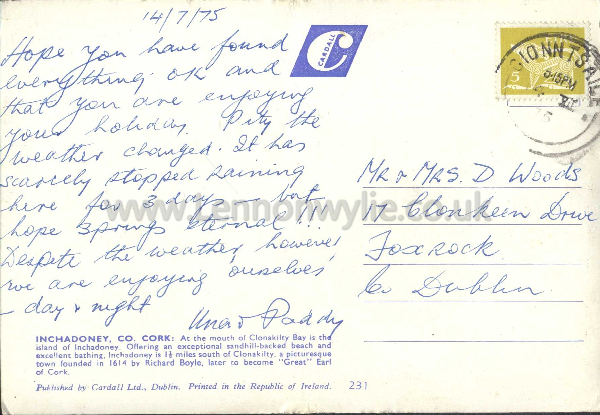 14/7/75
Hope you have found
everything ok and
that you are enjoying
your holiday. Pity the
weather changed. It has
scarcely stopped raining
here for 3 days - but
hope springs eternal!!!
Despite the weather, however
we are enjoying ourselves
- day & night
Una & Paddy
CARDALL
CIONNTSÁILE
6-15PM
VII
5
Mr & Mrs. D Woods
17 Clonkeen Drive
Foxrock
Co Dublin
www.kennethwylie.co.uk
INCHADONEY, CO. CORK: At the mouth of Clonakilty Bay is the
island of Inchadoney. Offering an exceptional sandhill-backed beach and
excellent bathing, Inchadoney is 1½ miles south of Clonakilty, a picturesque
town founded in 1614 by Richard Boyle, later to become "Great" Earl
of Cork.
Published by Cardall Ltd., Dublin. Printed in the Republic of Ireland. 231